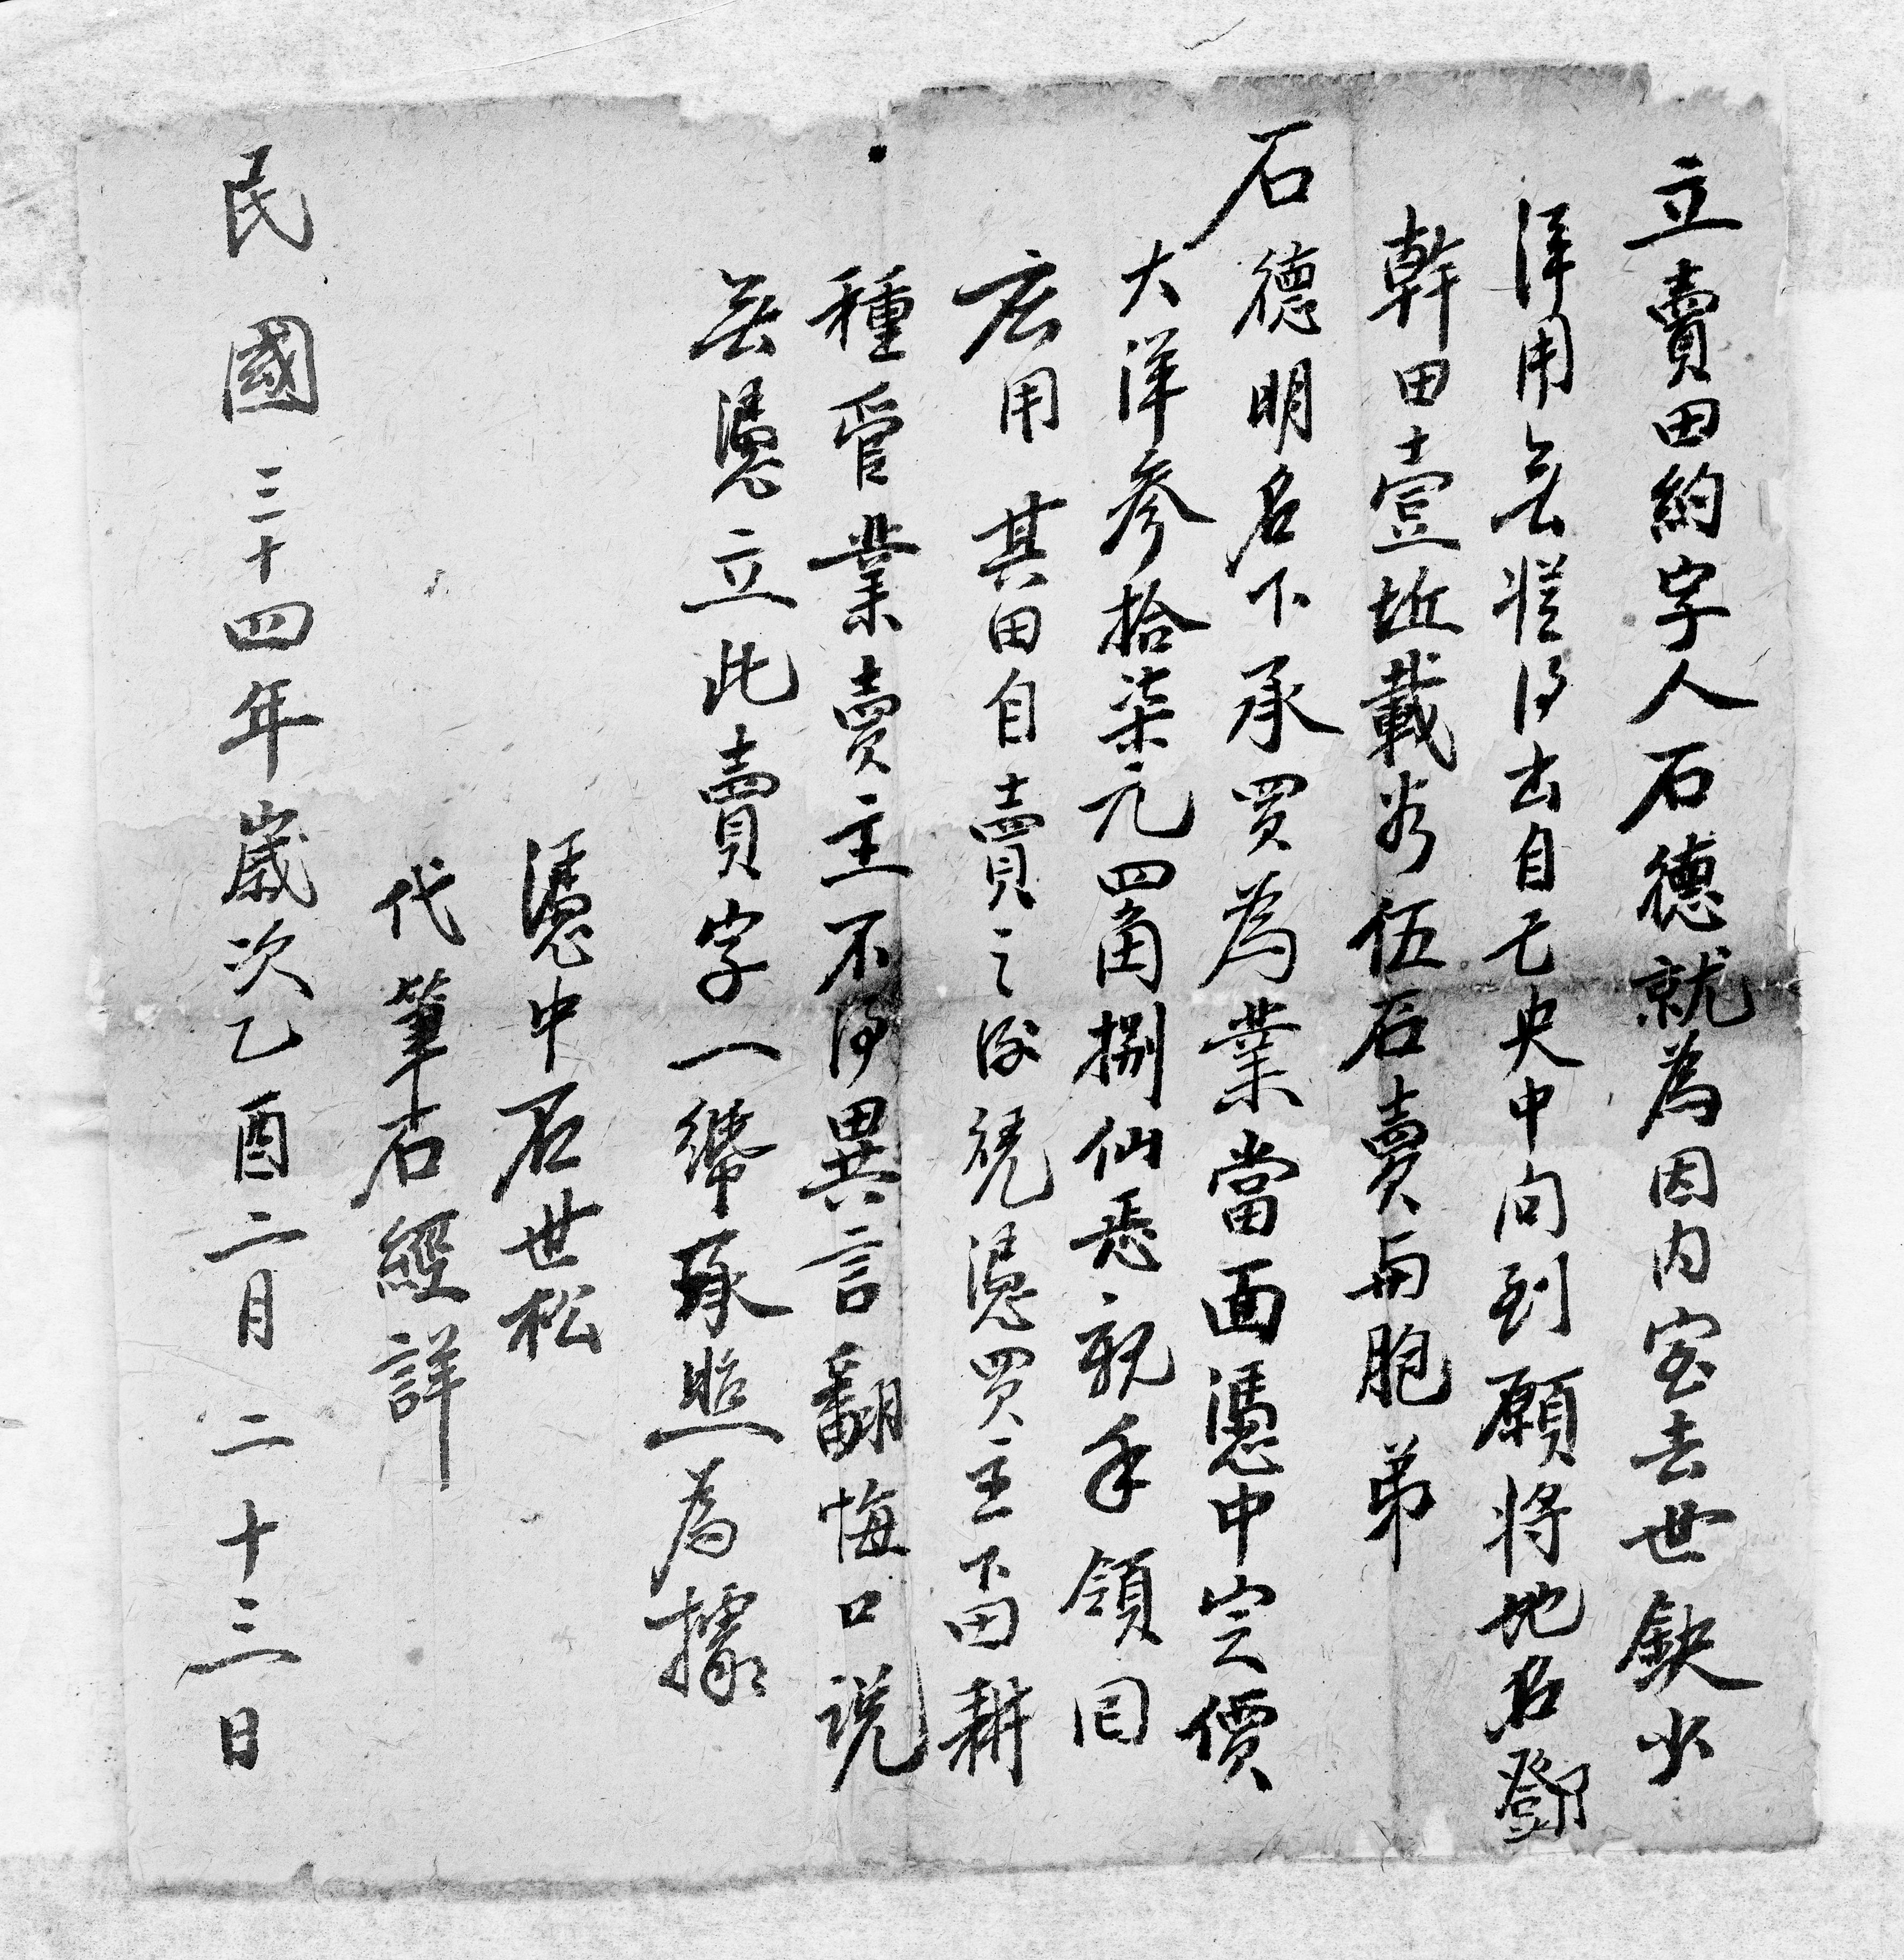 立賣田約字人石德就為因内室去世缺少
洋用無從得出自己央中向到願將地名鄧
幹田壹坵載谷伍石賣與胞弟
石德明名下承買為業當面憑中定價
大洋參拾柒元四角捌仙悉親手領囘
應用其田自賣之後凴憑買主下畨耕
種管業賣主不得異言翻悔口説
無憑立此賣字一紙承照為據
憑中石世松
代筆石經詳
民國三十四年歲次乙酉二月二十三日